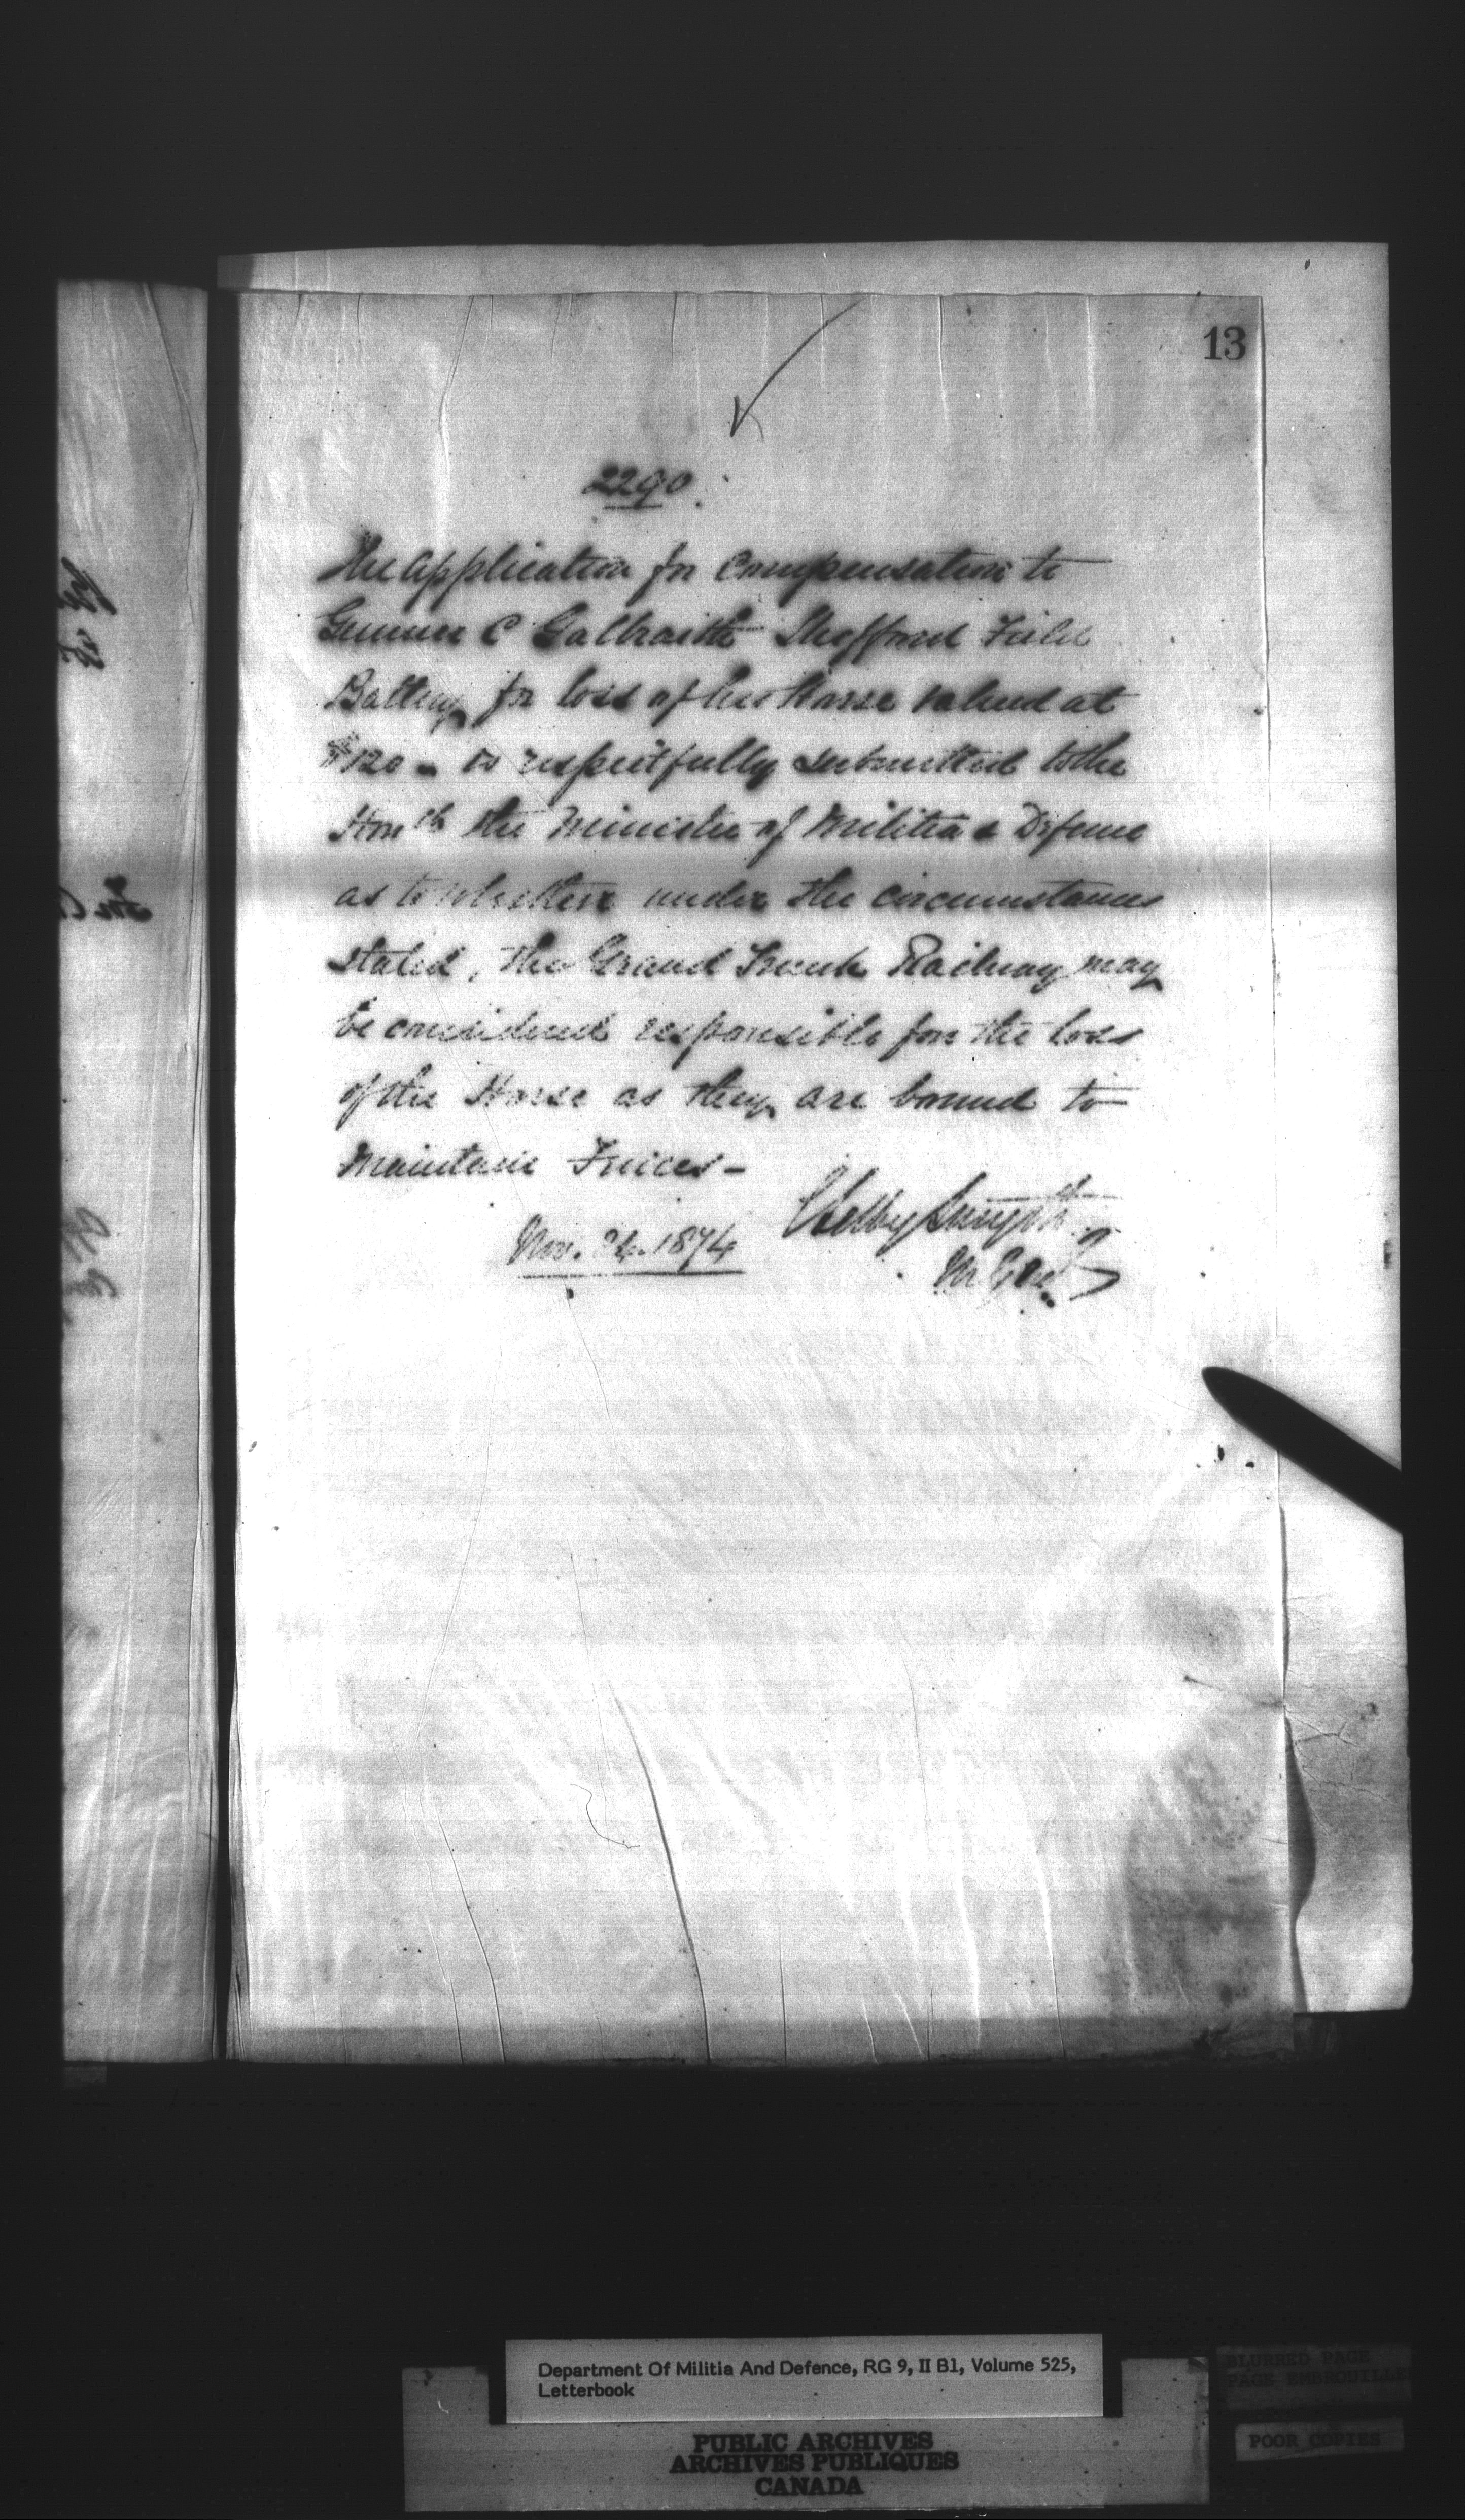 13
2290.
The Application for Compensation to
Gunner C Galbraith Shefford Field
Battery for loss of his Horse valued at
$120 - is respectfully submitted to the
Honble the Minister of Militia & Defence
as to whether under the circumstances
stated, the Grand Trunk Railway may
be considered responsible for the loss
of the Horse as they are bound to
maintain Fences -
Nov. 24. 1874
Selby Smyth
M Genl
Department Of Militia And Defence, RG 9, II B1, Volume 525,
Letterbook
PUBLIC ARCHIVES
ARCHIVES PUBLIQUES
CANADA
BLURRED PAGE
PAGE EMBROUILLE
POOR COPIES